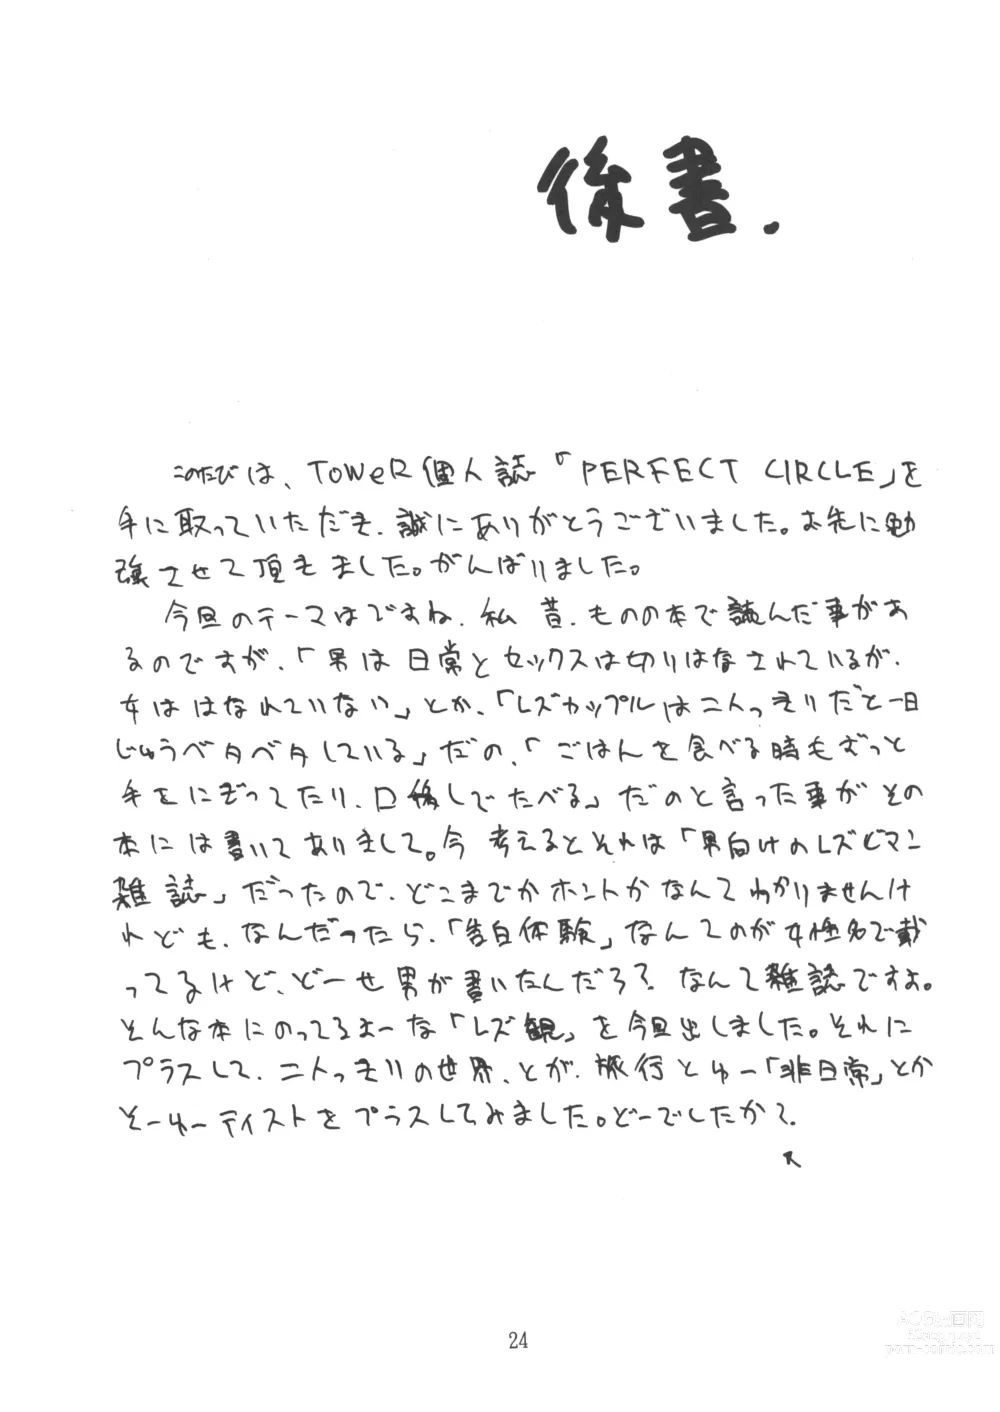 後書.
このたびは、TOWeR個人誌「PERFECT CIRCLE」を
手に取っていただき、誠にありがとうございました。お先に勉
強させて頂きました。がんばりました。
今回のテーマはですね、私昔、ものの本で読んだ事があ
るのですが、「男は日常とセックスは切りはなされているが、
女ははなれていない」とか、「レズカップルは二人っきりだと一日
じゅうベタベタしている」だの、「ごはんを食べる時もずっと
手をにぎってたり、口移しでたべる」だのと言った事がその
本には書いてありまして。今考えるとそれは「男向けのレズビアン
雑誌」だったので、どこまでがホントかなんてわかりませんけ
れども、なんだったら、「告白体験」なんてのが女性名で載
ってるけど、どーせ男が書いたんだろ?なんて雑誌ですよ。
そんな本にのってるよーな「レズ観」を今回出しました。それに
プラスして、二人っきりの世界、とか、旅行とゆー「非日常」とか
そーゆーテイストをプラスしてみました。どーでしたか?
24